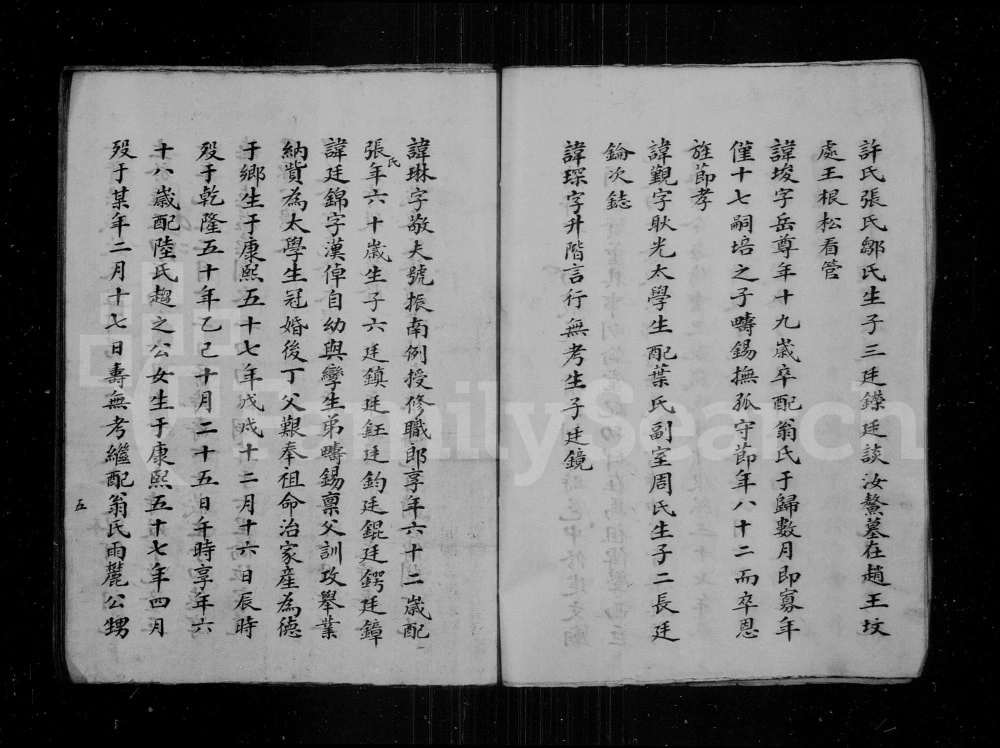 許氏張氏鄒氏生子三廷鑅廷談汝鰲墓在趙王坟
處王根松看管
諱埈字岳尊年十九歲卒配翁氏于歸數月即寡年
僅十七嗣培之子疇錫撫孤守節年八十二而卒恩
旌節孝
諱觀字耿光太學生配葉氏副室周氏生子二長廷
錀次鋕
諱琛字升階言行無考生子廷鏡
諱琳字敬夫號振南例授修職郎享年六十二歲配
張氏年六十歲生子六廷鎮廷鈺廷鈞廷錕廷鍔廷鏱
諱廷錦字漢倬自幼與孿生弟疇錫稟父訓攻舉業
納貲為太學生冠婚後丁父艱奉祖命治家產為德
于鄉生于康熙五十七年戊戌十二月十六日辰時
歿于乾隆五十年乙巳十月二十五日午時享年六
十八歲配陸氏超之公女生于康熙五十七年四月
歿于某年二月十七日壽無考繼配翁氏雨麓公甥
五
FamilySearch